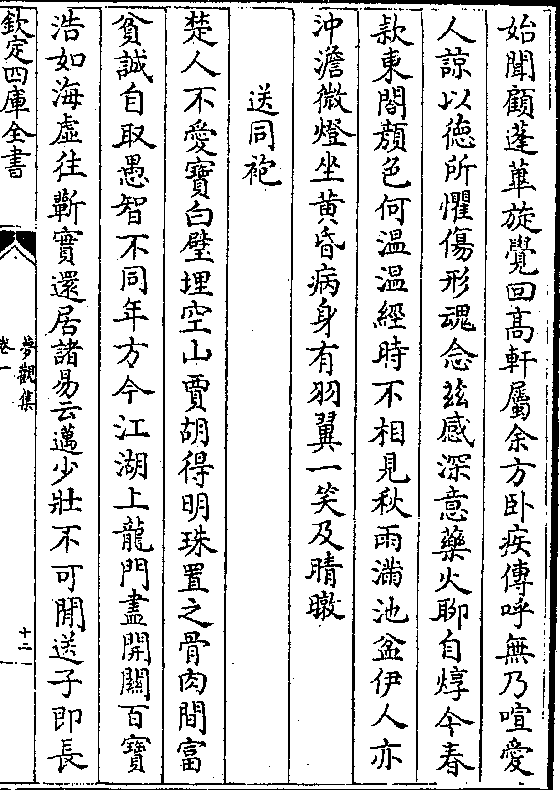 始聞顧蓬蓽旋覺回髙軒屬余方卧疾傳呼無乃喧愛
人諒以徳所懼傷形魂念兹感深意藥火聊自焞今春
款東閤顔色何温温經時不相見秋雨滿池盆伊人亦
沖澹微燈坐黄昏病身有羽翼一笑及晴暾
送同袍
楚人不愛寶白璧埋空山賈胡得明珠置之骨肉間富
貧誠自取愚智不同年方今江湖上龍門盡開關百寳
浩如海虛往蘄實還居諸易云邁少壯不可閒送子即長
欽定四庫全書
夢觀集
卷一
十二